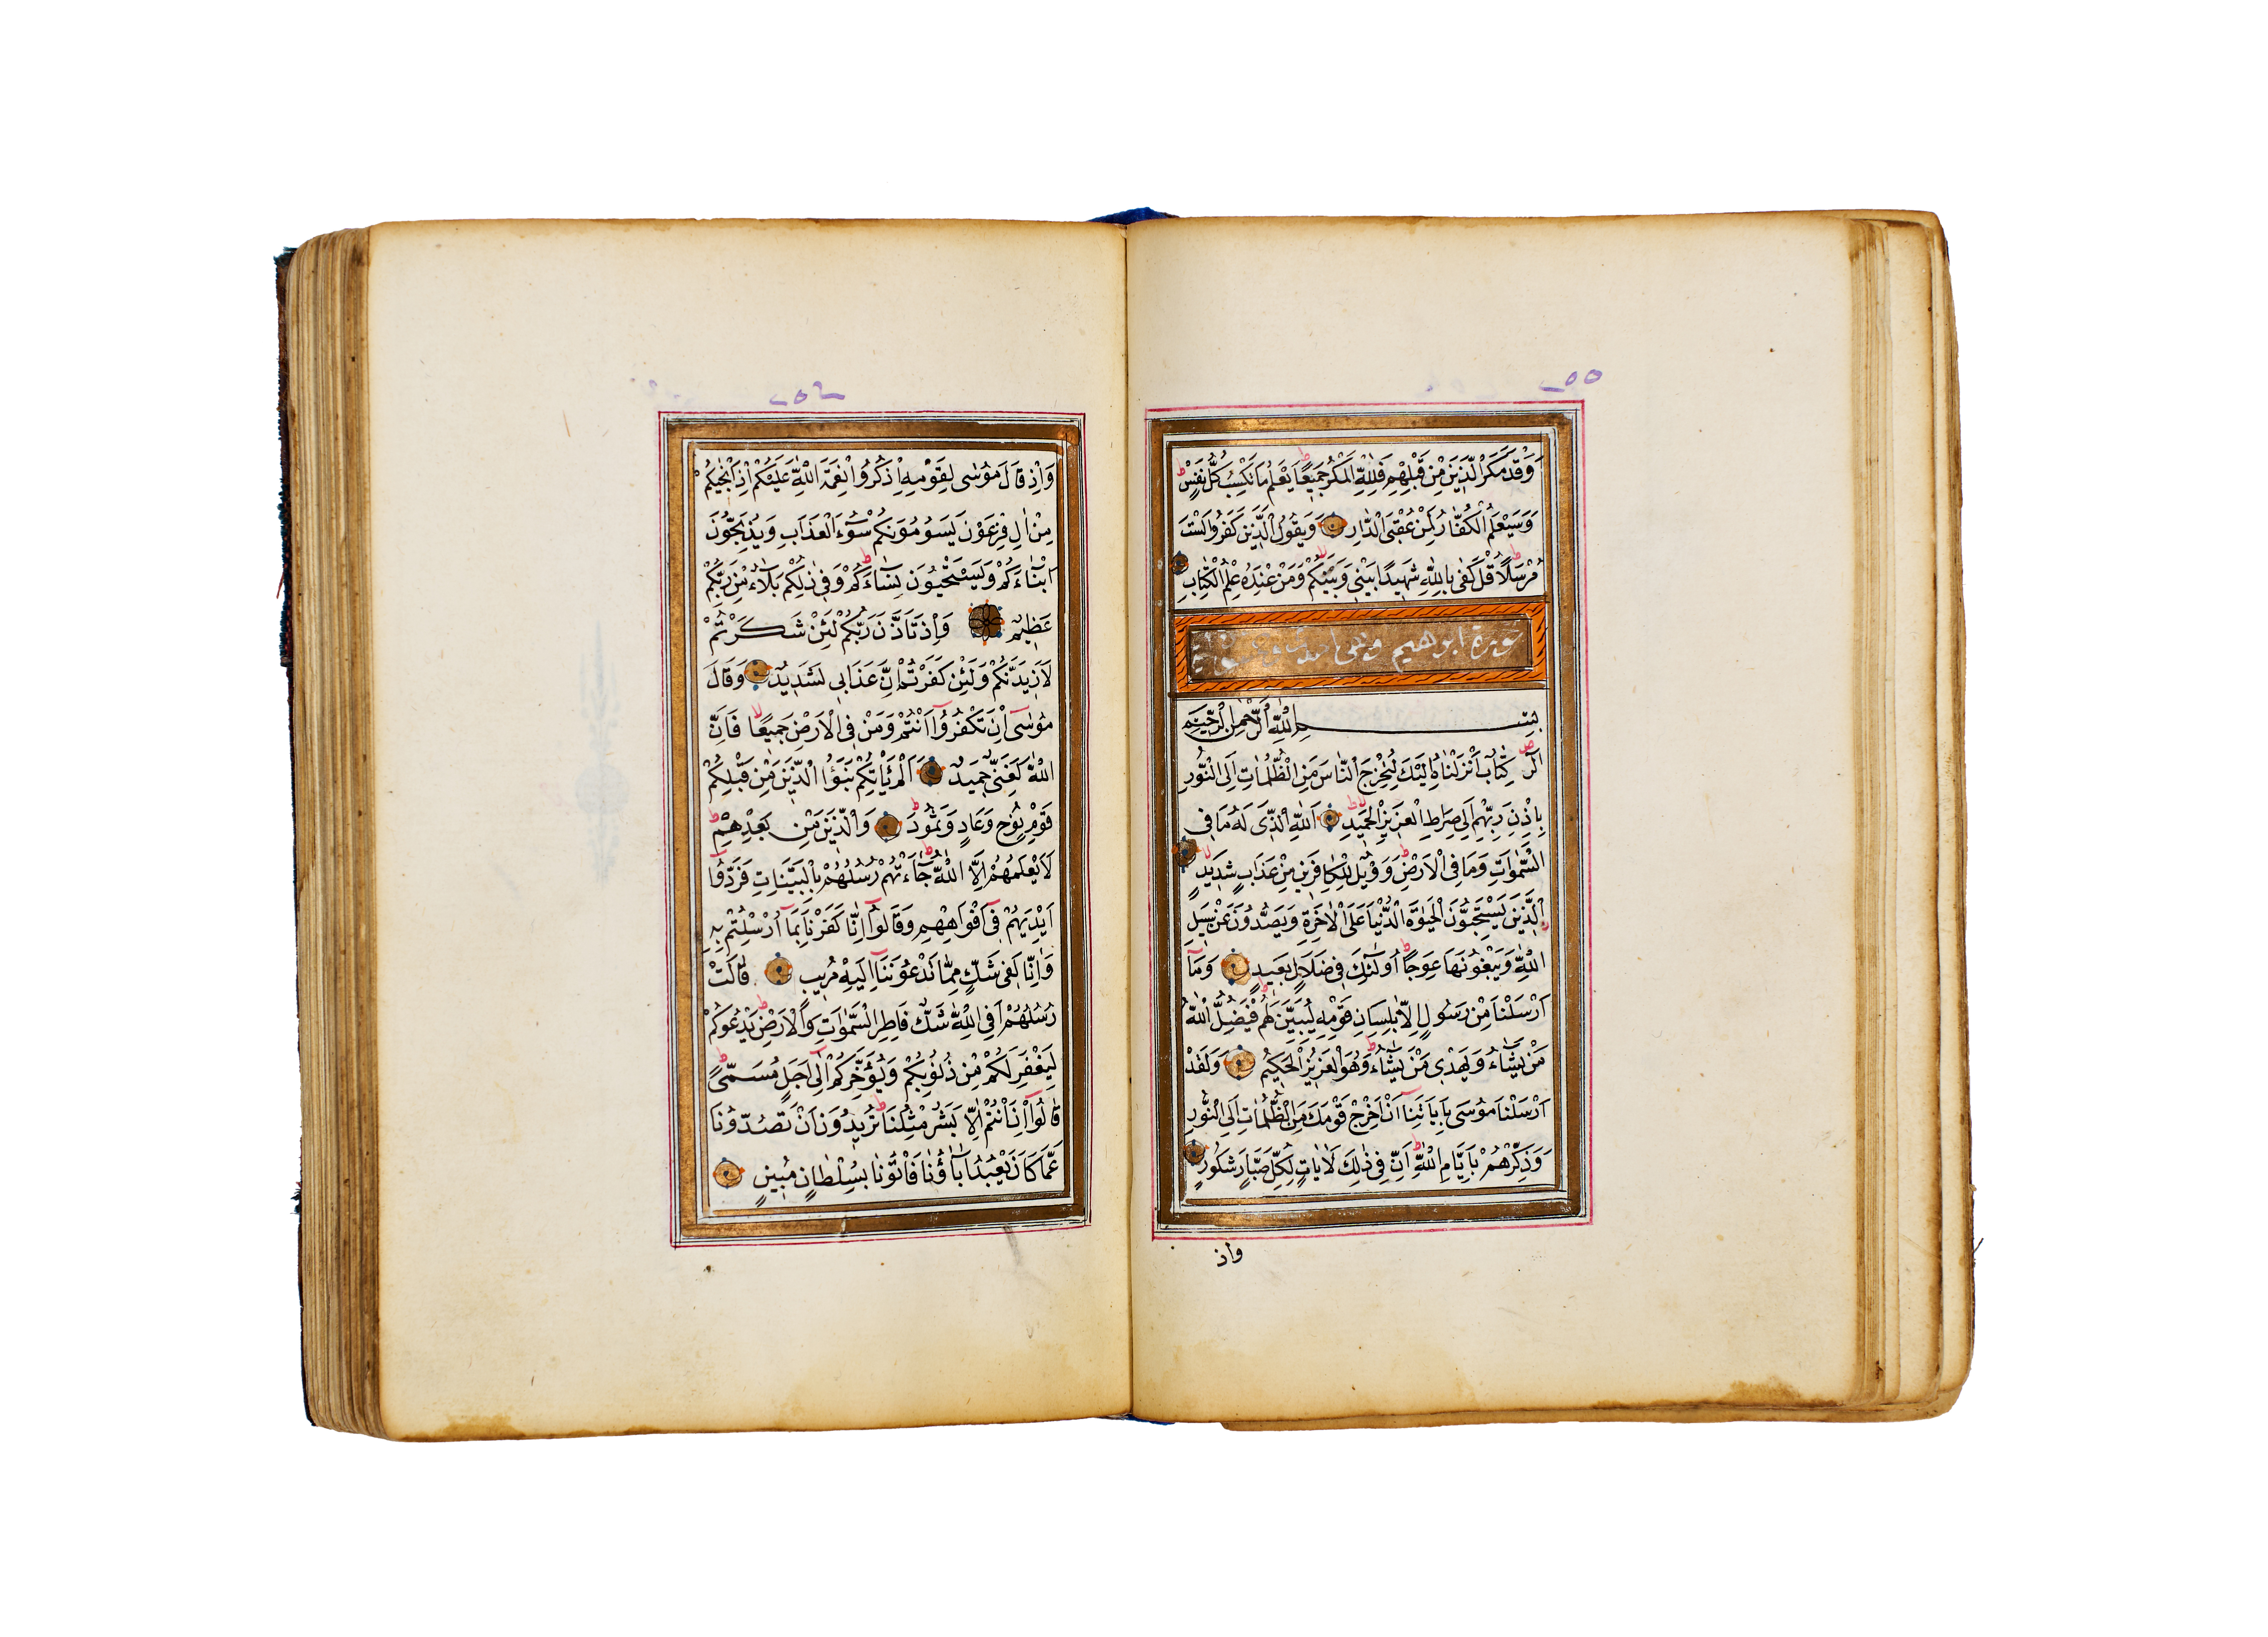 ٢٥٥
وَقَدْ مَكَرَ الَّذِينَ مِنْ قَبْلِهِمْ فَلِلّٰهِ الْمَكْرُ جَمِيعًا يَعْلَمُ مَا تَكْسِبُ كُلُّ نَفْسٍ
وَسَيَعْلَمُ الْكُفَّارُ لِمَنْ عُقْبَى الدَّارِ وَيَقُولُ الَّذِينَ كَفَرُوا لَسْتَ
مُرْسَلًا قُلْ كَفٰى بِاللّٰهِ شَهِيدًا بَيْنِي وَبَيْنَكُمْ وَمَنْ عِنْدَهُ عِلْمُ الْكِتَابِ
سورة ابرهيم
بِسْمِ اللّٰهِ الرَّحْمٰنِ الرَّحِيمِ
الٓرٰ كِتَابٌ أَنْزَلْنَاهُ إِلَيْكَ لِتُخْرِجَ النَّاسَ مِنَ الظُّلُمَاتِ إِلَى النُّورِ
بِإِذْنِ رَبِّهِمْ إِلٰى صِرَاطِ الْعَزِيزِ الْحَمِيدِ اَللّٰهِ الَّذِي لَهُ مَا فِي
السَّمٰوَاتِ وَمَا فِي الْاَرْضِ وَوَيْلٌ لِلْكَافِرِينَ مِنْ عَذَابٍ شَدِيدٍ
اَلَّذِينَ يَسْتَحِبُّونَ الْحَيٰوةَ الدُّنْيَا عَلَى الْاٰخِرَةِ وَيَصُدُّونَ عَنْ سَبِيلِ
اللّٰهِ وَيَبْغُونَهَا عِوَجًا أُولٰئِكَ فِي ضَلَالٍ بَعِيدٍ وَمَآ
اَرْسَلْنَا مِنْ رَسُولٍ إِلَّا بِلِسَانِ قَوْمِهِ لِيُبَيِّنَ لَهُمْ فَيُضِلُّ اللّٰهُ
مَنْ يَشَآءُ وَيَهْدِي مَنْ يَشَآءُ وَهُوَ الْعَزِيزُ الْحَكِيمُ وَلَقَدْ
اَرْسَلْنَا مُوسٰى بِاٰيَاتِنَآ اَنْ اَخْرِجْ قَوْمَكَ مِنَ الظُّلُمَاتِ إِلَى النُّورِ
وَذَكِّرْهُمْ بِاَيَّامِ اللّٰهِ اِنَّ فِي ذٰلِكَ لَاٰيَاتٍ لِكُلِّ صَبَّارٍ شَكُورٍ
واذ
٢٥٦
وَاِذْ قَالَ مُوسٰى لِقَوْمِهِ اذْكُرُوا نِعْمَةَ اللّٰهِ عَلَيْكُمْ اِذْ اَنْجٰيكُمْ
مِنْ اٰلِ فِرْعَوْنَ يَسُومُونَكُمْ سُوٓءَ الْعَذَابِ وَيُذَبِّحُونَ
اَبْنَآءَكُمْ وَيَسْتَحْيُونَ نِسَآءَكُمْ وَفِي ذٰلِكُمْ بَلَآءٌ مِنْ رَبِّكُمْ
عَظِيمٌ وَاِذْ تَاَذَّنَ رَبُّكُمْ لَئِنْ شَكَرْتُمْ
لَاَزِيدَنَّكُمْ وَلَئِنْ كَفَرْتُمْ اِنَّ عَذَابِي لَشَدِيدٌ وَقَالَ
مُوسٰىٓ اِنْ تَكْفُرُوٓا اَنْتُمْ وَمَنْ فِي الْاَرْضِ جَمِيعًا فَاِنَّ
اللّٰهَ لَغَنِيٌّ حَمِيدٌ اَلَمْ يَأْتِكُمْ نَبَؤُا الَّذِينَ مِنْ قَبْلِكُمْ
قَوْمِ نُوحٍ وَعَادٍ وَثَمُودَ وَالَّذِينَ مِنْ بَعْدِهِمْ
لَا يَعْلَمُهُمْ اِلَّا اللّٰهُ جَآءَتْهُمْ رُسُلُهُمْ بِالْبَيِّنَاتِ فَرَدُّوٓا
اَيْدِيَهُمْ فِيٓ اَفْوَاهِهِمْ وَقَالُوٓا اِنَّا كَفَرْنَا بِمَآ اُرْسِلْتُمْ بِهِ
وَاِنَّا لَفِي شَكٍّ مِمَّا تَدْعُونَنَآ اِلَيْهِ مُرِيبٍ قَالَتْ
رُسُلُهُمْ اَفِي اللّٰهِ شَكٌّ فَاطِرِ السَّمٰوَاتِ وَالْاَرْضِ يَدْعُوكُمْ
لِيَغْفِرَ لَكُمْ مِنْ ذُنُوبِكُمْ وَيُؤَخِّرَكُمْ اِلٰىٓ اَجَلٍ مُسَمًّى
قَالُوٓا اِنْ اَنْتُمْ اِلَّا بَشَرٌ مِثْلُنَا تُرِيدُونَ اَنْ تَصُدُّونَا
عَمَّا كَانَ يَعْبُدُ اٰبَآؤُنَا فَاْتُونَا بِسُلْطَانٍ مُبِينٍ